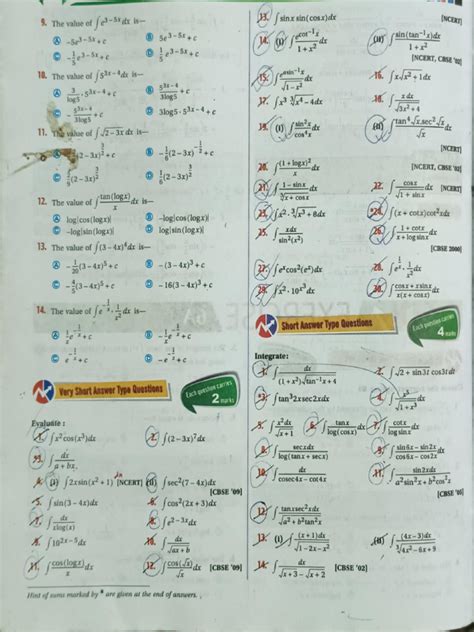 9. The value of ∫e^{3-5x}dx is—
Ⓐ -5e^{3-5x}+c Ⓑ 5e^{3-5x}+c
Ⓒ -1/5 e^{3-5x}+c Ⓓ 1/5 e^{3-5x}+c
10. The value of ∫5^{3x-4}dx is—
Ⓐ 3/log5 · 5^{3x-4}+c Ⓑ 5^{3x-4}/3log5 +c
Ⓒ -5^{3x-4}/3log5 +c Ⓓ 3log5·5^{3x-4}+c
11. The value of ∫√(2-3x) dx is—
(2-3x)^{3/2}+c Ⓑ -1/6(2-3x)^{-1/2}+c
(2-3x)^{3/2} (2-3x)^{3/2}+c
12. The value of ∫tan(logx)/x dx is—
Ⓐ log|cos(logx)| Ⓑ -log|cos(logx)|
Ⓒ -log|sin(logx)| Ⓓ log|sin(logx)|
13. The value of ∫(3-4x)^4dx is—
Ⓐ -1/20(3-4x)^5+c Ⓑ -(3-4x)^3+c
Ⓒ -4/5(3-4x)^5+c Ⓓ -16(3-4x)^3+c
14. The value of ∫e^{-1/x}·1/x² dx is—
Very Short Answer Type Questions
Each question carries
2 marks
Evaluate :
1. ∫x²cos(x³)dx 2. ∫(2-3x)^7dx
*3. ∫dx/(a+bx)
4. (i) ∫2xsin(x²+1) dx [NCERT] (ii) ∫sec²(7-4x)dx
[CBSE '09]
5. ∫sin(3-4x)dx 6. ∫cos²(2x+3)dx
7. ∫dx/xlog(x) 8. ∫e^{2-3x}dx
9. ∫10^{2x-5}dx 10. ∫dx/√(ax+b)
11. ∫cos(logx)/x dx 12. ∫cos(√x)/√x dx [CBSE '09]
Hint of sums marked by * are given at the end of answers.
13. ∫sinx sin(cosx)dx [NCERT]
14. (i) ∫e^{cot⁻¹x}/(1+x²) dx (ii) ∫sin(tan⁻¹x)/(1+x²) dx
[NCERT, CBSE '02]
15. ∫e^{asin⁻¹x}/√(1-x²) dx 16. ∫x√(x²+1) dx
17. ∫x³ ∛(x⁴-4) dx 18. ∫xdx/√(3x²+4)
19. (i) ∫sin²x/cos⁴x dx (ii) ∫tan⁴√x.sec²√x/√x dx
[NCERT]
20. ∫(1+logx)²/x dx [NCERT, CBSE '02]
21. ∫(1-sinx)/∛(x+cosx) dx 22. ∫cosx/√(1+sinx) dx [NCERT]
23. ∫x².∛(x³+8) dx *24. ∫(x+cotx)cot²xdx
25. ∫xdx/sin²(x²) 26. ∫(1+cotx)/(x+logsinx) dx
[CBSE 2000]
27. ∫e^xcos²(e^x)dx 28. ∫1/e^x·1/x² dx
29. ∫x²·10^{x³}dx 30. ∫(cosx+xsinx)/x(x+cosx) dx
Short Answer Type Questions
Each question carries
4 marks
Integrate:
1. ∫dx/(1+x²)√(tan⁻¹x+4) 2. ∫√(2+sin3t) cos3tdt
*3. ∫tan³2xsec2xdx 4. ∫x⁵/√(1+x³) dx
5. ∫x²dx/√(x+1) 6. ∫tanx/log(cosx) dx 7. ∫cotx/logsinx dx
8. ∫secxdx/log(tanx+secx) 9. ∫(sin6x-sin2x)/(cos6x-cos2x) dx
10. ∫dx/(cosec4x-cot4x) 11. ∫sin2xdx/(a²sin²x+b²cos²x)
[CBSE '05]
12. ∫tanxsec²xdx/√(a²+b²tan²x)
13. (i) ∫(x+1)dx/√(1-2x-x²) (ii) ∫(4x-3)dx/∛(4x²-6x+9)
14. ∫dx/(√(x+3)-√(x+2)) [CBSE '02]